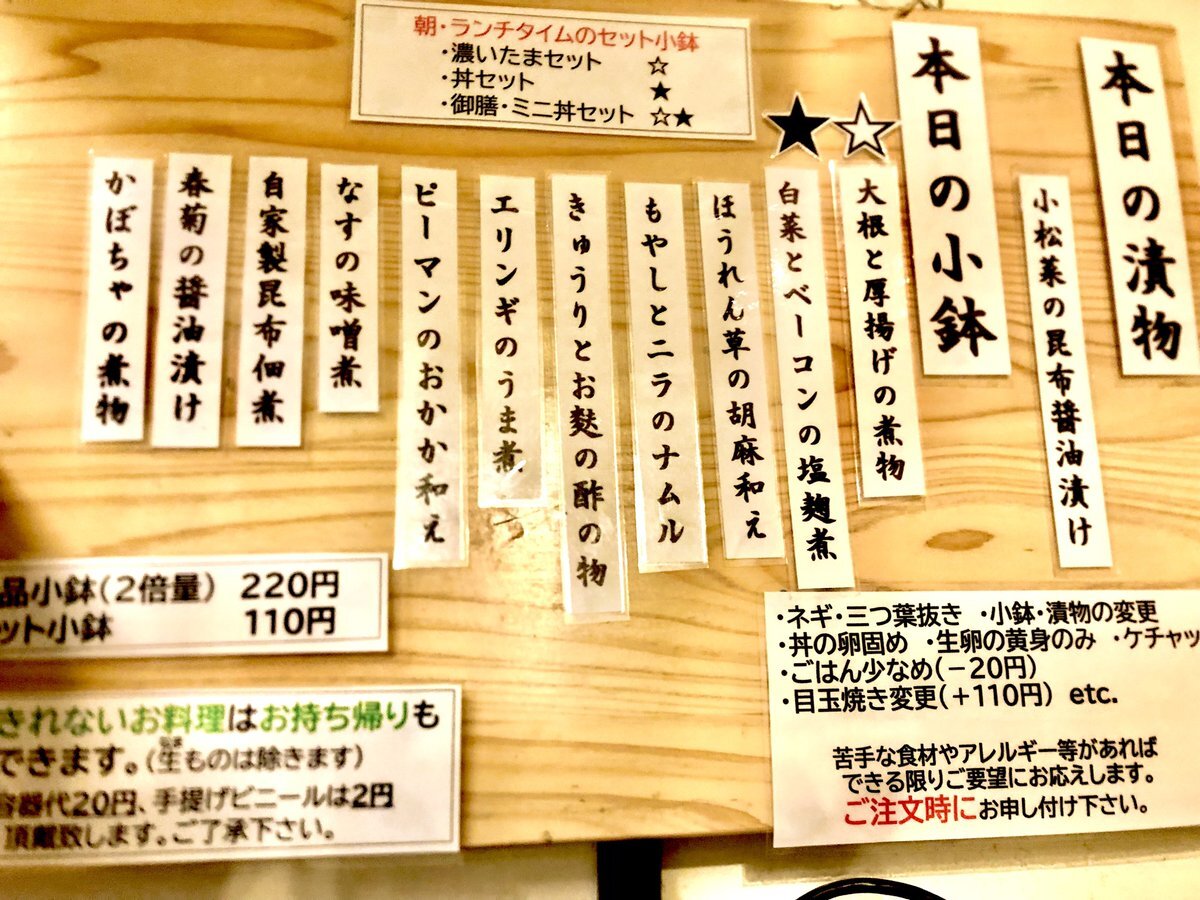 朝・ランチタイムのセット小鉢
・濃いたまセット ☆
・丼セット ★
・御膳・ミニ丼セット ☆★
本日の漬物
小松菜の昆布醤油漬け
本日の小鉢
☆
大根と厚揚げの煮物
★
白菜とベーコンの塩麹煮
ほうれん草の胡麻和え
もやしとニラのナムル
きゅうりとお麩の酢の物
エリンギのうま煮
ピーマンのおかか和え
なすの味噌煮
自家製昆布佃煮
春菊の醤油漬け
かぼちゃの煮物
品小鉢(2倍量) 220円
ット小鉢 110円
されないお料理はお持ち帰りも
できます。(生ものは除きます)
容器代20円、手提げビニールは2円
頂戴致します。ご了承下さい。
・ネギ・三つ葉抜き ・小鉢・漬物の変更
・丼の卵固め ・生卵の黄身のみ ・ケチャッ
・ごはん少なめ(−20円)
・目玉焼き変更(+110円) etc.
苦手な食材やアレルギー等があれば
できる限りご要望にお応えします。
ご注文時にお申し付け下さい。